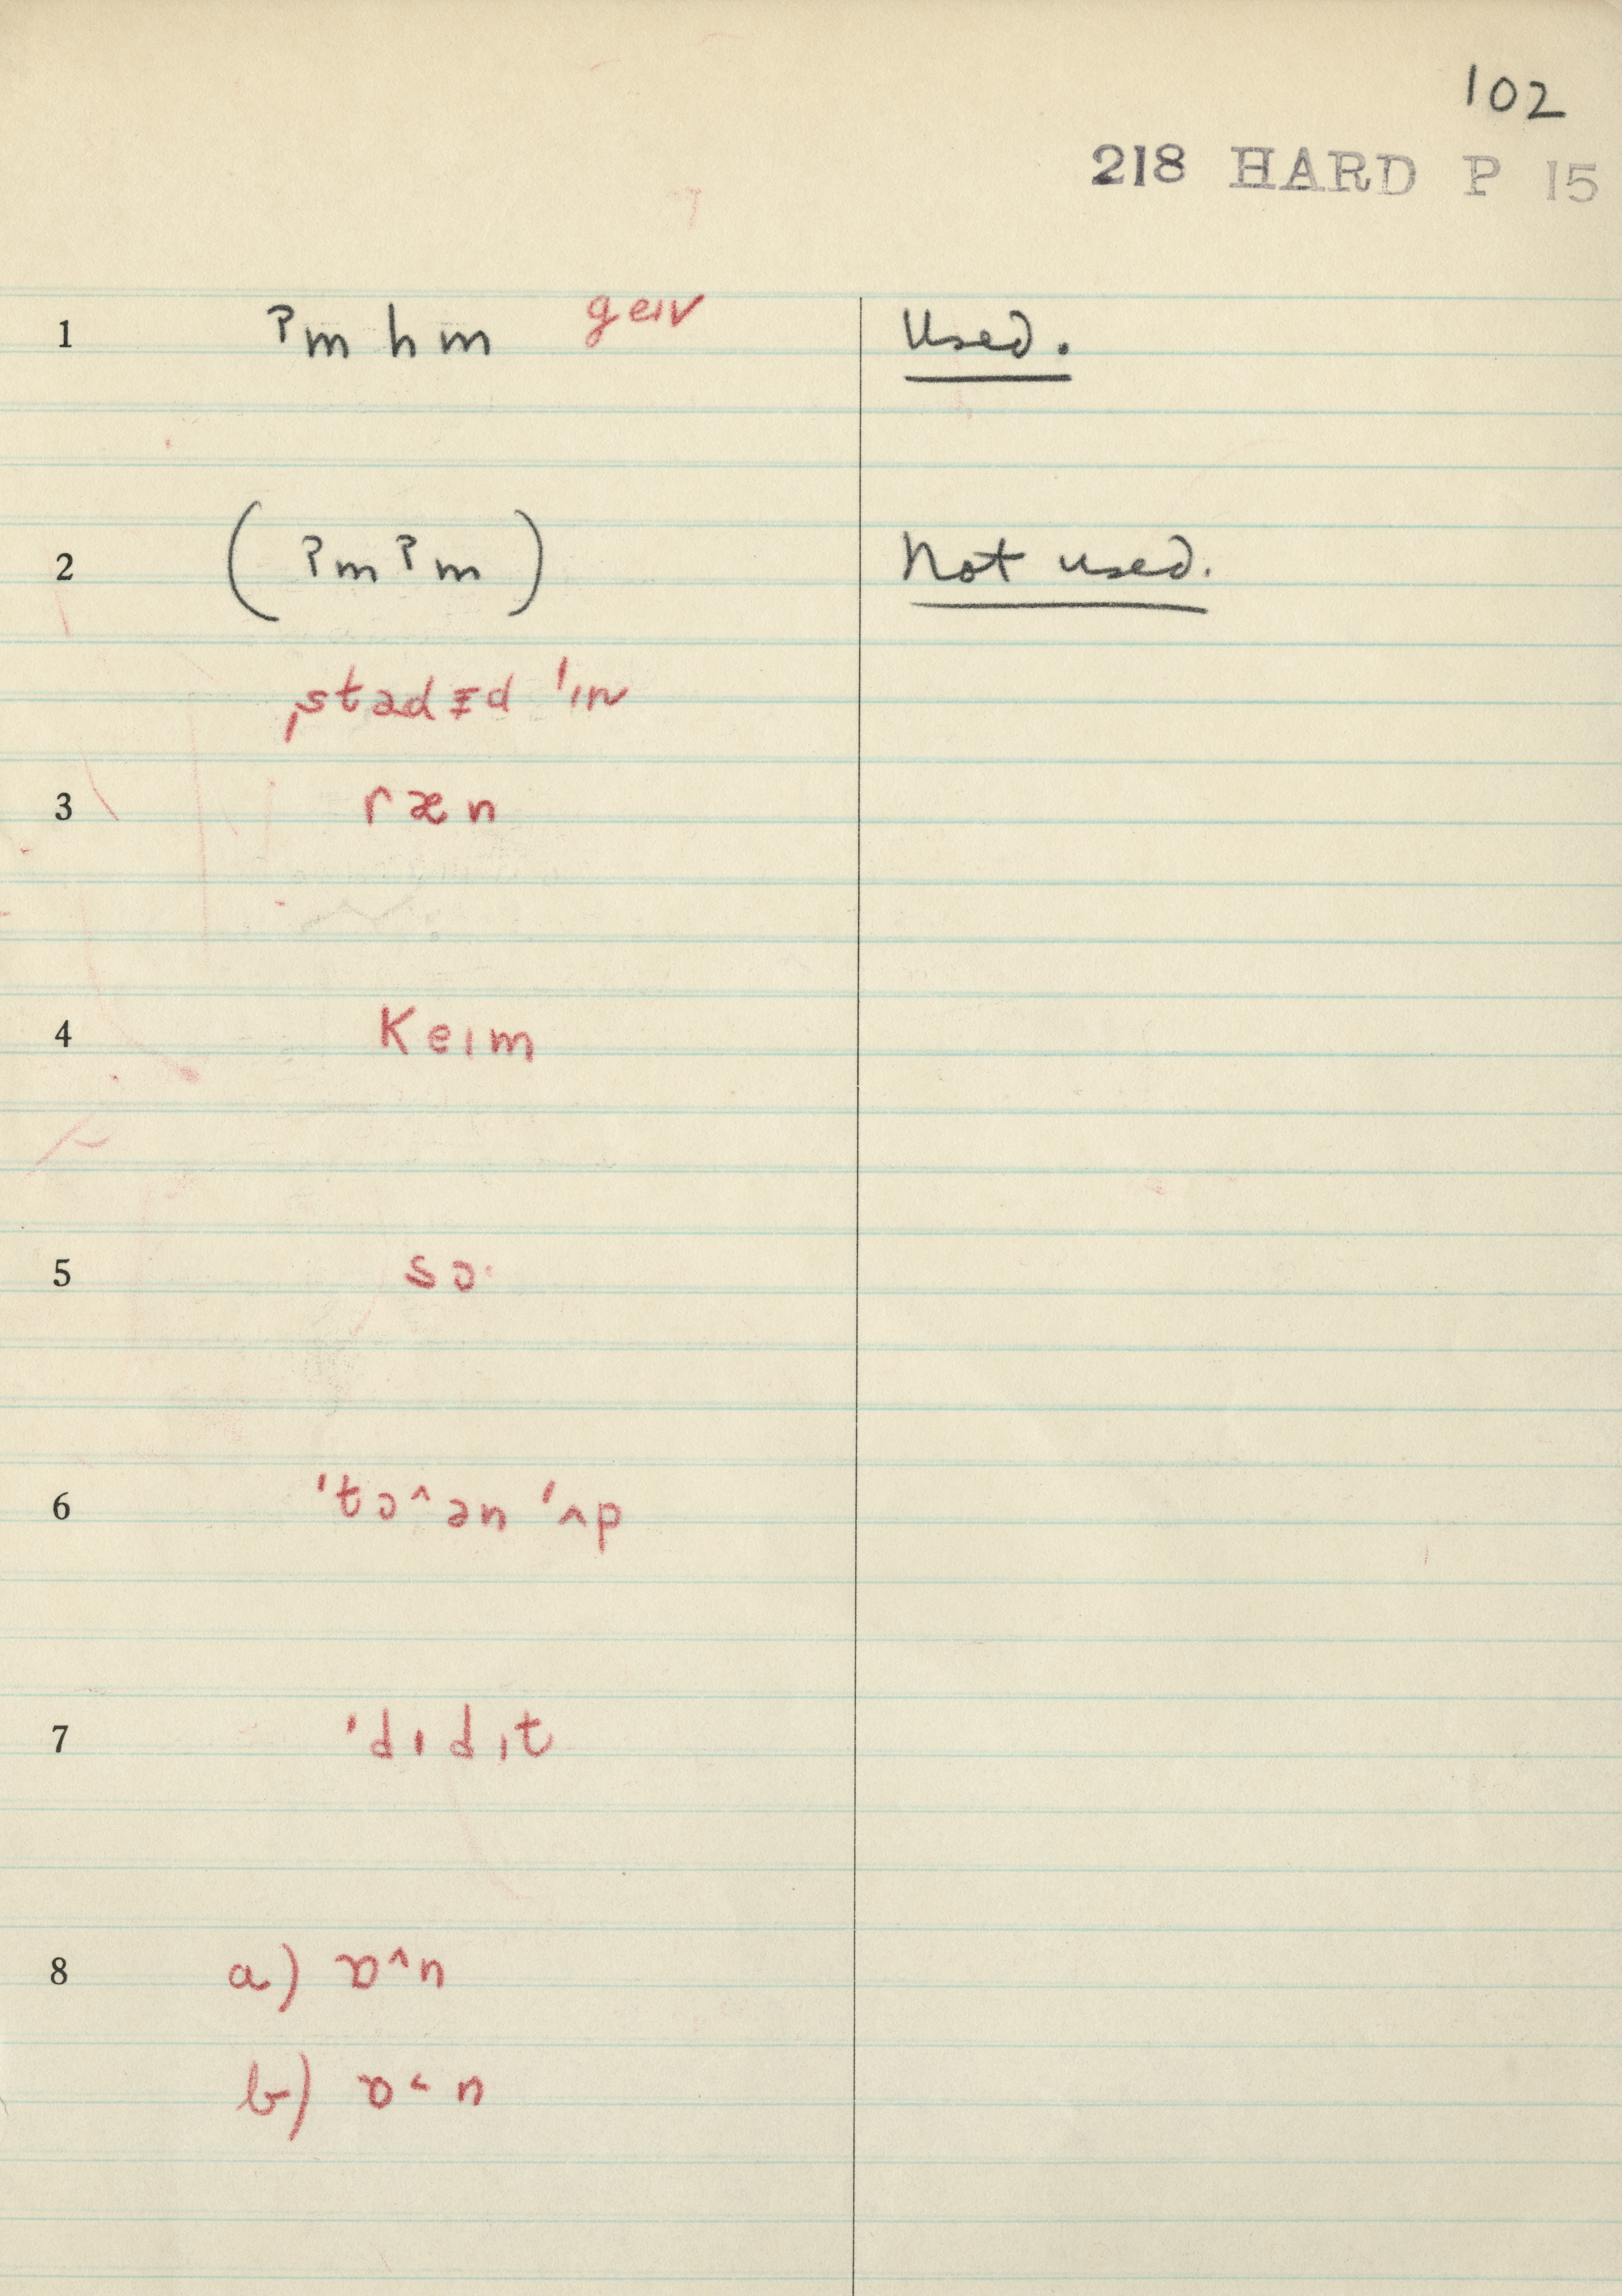 102
218 HARD P 15
1 ʔm h m geɪv Used.
2 (ʔmʔm) Not used.
ˌstadɪd ˈɪn
3 ræn
4 Keɪm
5 sɔ·
6 ˈtɔ^ən ˈʌp
7 ˈdɪdˌɪt
8 a) ɒ^n
b) ɒ˂n